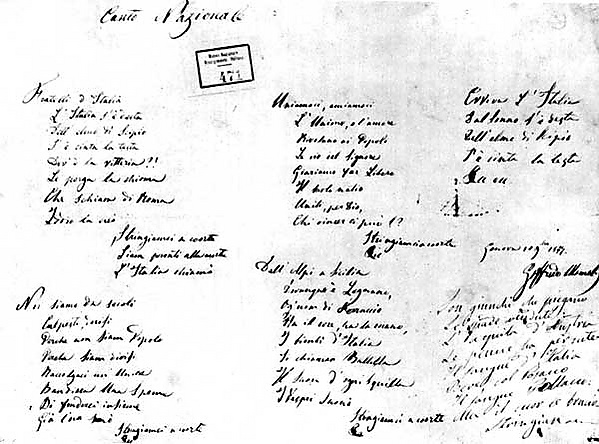 Canto Nazionale
Museo
471
Fratelli d'Italia
L'Italia s'è desta
Dell'elmo di Scipio
S'è cinta la testa
Dov'è la vittoria?!
Le porga la chioma
Che schiava di Roma
Iddio la creò
Stringiamci a coorte
Siam pronti alla morte
L'Italia chiamò
Noi siamo da secoli
Calpesti, derisi
Perchè non siam Popolo
Perchè siam divisi
Raccolgaci un'Unica
Bandiera una Speme
Di fonderci insieme
Già l'ora suonò
Stringiamci a coorte
Uniamoci, amiamoci
L'Unione, e l'amore
Rivelano ai Popoli
Le vie del Signore
Giuriamo far Libero
Il suolo natio
Uniti, per Dio,
Chi vincer ci può!?
Stringiamci a coorte
Dall'Alpi a Sicilia
Dovunque è Legnano,
Ogn'uom di Ferruccio
Ha il core, ha la mano,
I bimbi d'Italia
Si chiaman Balilla
Il suon d'ogni squilla
I Vespri suonò
Stringiamci a coorte
Evviva l'Italia
Dal sonno s'è desta
Dell'elmo di Scipio
S'è cinta la testa
Genova
Goffredo Mameli
Son giunchi che piegano
Le spade vendute
L'Aquila d'Austria
Le penne ha perdute
Il sangue d'Italia
Bevè col Cosacco
Il sangue Polacco
Ma il cuor le bruciò
Stringiamci